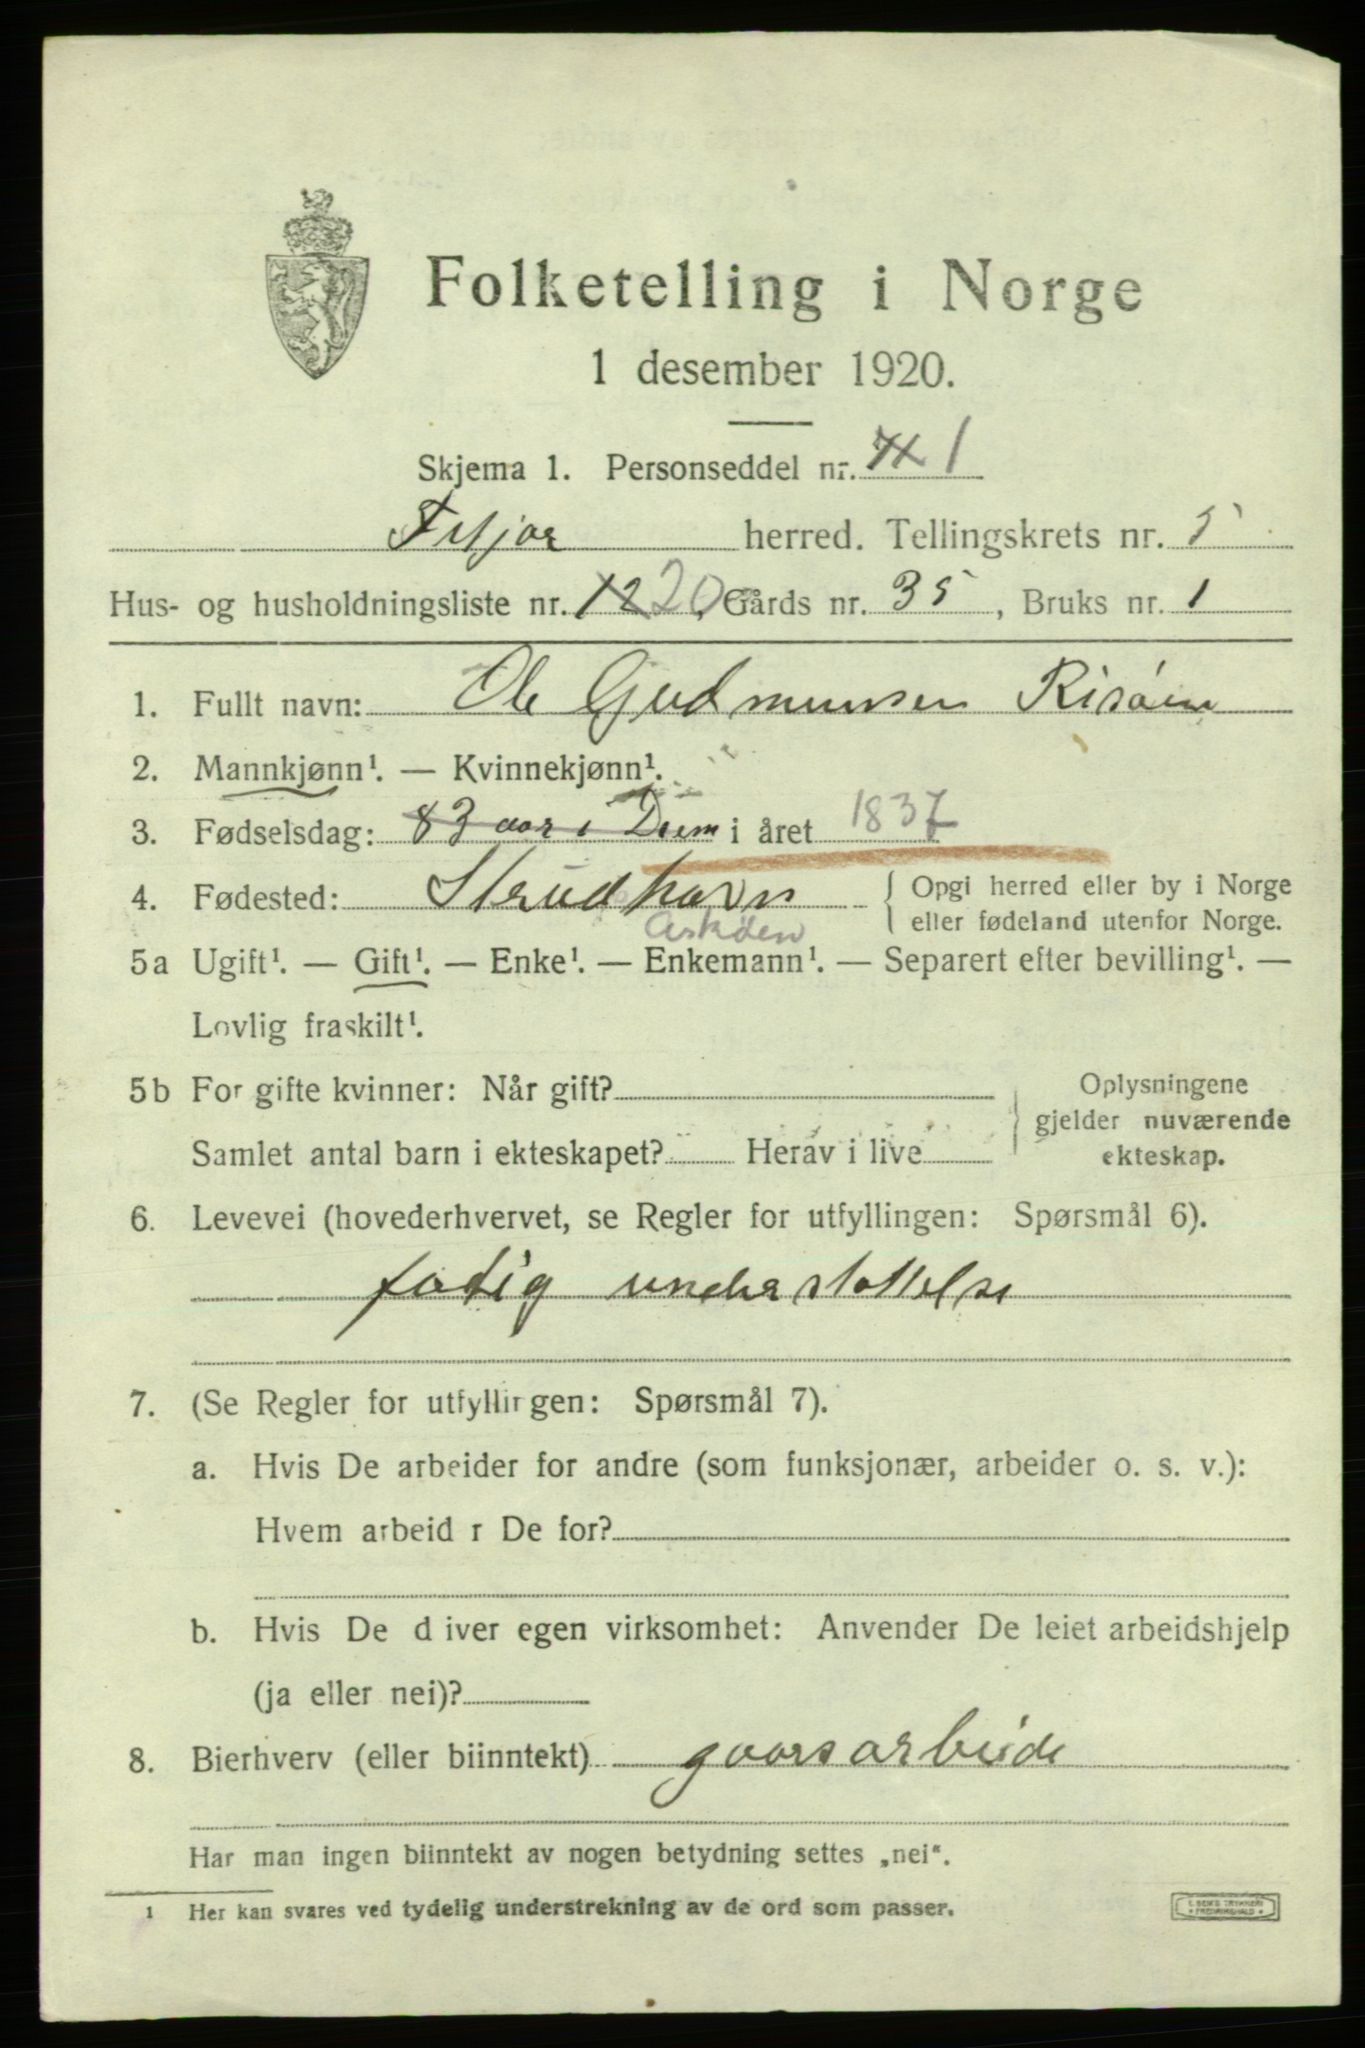 Folketelling i Norge
1 desember 1920.
Skjema 1. Personseddel nr. 1
Fitjar herred. Tellingskrets nr. 5
Hus- og husholdningsliste nr. 12 20, Gårds nr. 35, Bruks nr. 1
1. Fullt navn: Ole Gudmunsen Risöen
2. Mannkjønn¹. — Kvinnekjønn¹.
3. Fødselsdag: 83 aar i Dsem i året 1837
4. Fødested: Strudhavn { Opgi herred eller by i Norge
eller fødeland utenfor Norge.
Askøen
5a Ugift¹. — Gift¹. — Enke¹. — Enkemann¹. — Separert efter bevilling¹. —
Lovlig fraskilt¹.
5b For gifte kvinner: Når gift? } Oplysningene
gjelder nuværende
Samlet antal barn i ekteskapet? Herav i live ekteskap.
6. Levevei (hovederhvervet, se Regler for utfyllingen: Spørsmål 6).
fatig understøttelse
7. (Se Regler for utfyllirgen: Spørsmål 7).
a. Hvis De arbeider for andre (som funksjonær, arbeider o. s. v.):
Hvem arbeid r De for?
b. Hvis De d iver egen virksomhet: Anvender De leiet arbeidshjelp
(ja eller nei)?
8. Bierhverv (eller biinntekt) gaarsarbeide
Har man ingen biinntekt av nogen betydning settes „nei“.
1 Her kan svares ved tydelig understrekning av de ord som passer.